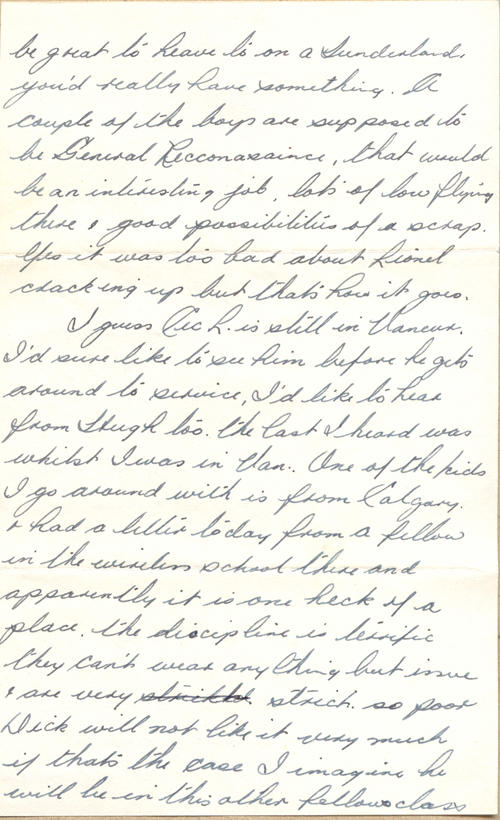 be great to heave to on a Sunderland.
you'd really have something. A
couple of the boys are supposed to
be General Recconasaince, that would
be an interesting job, lots of low flying
there & good possibilities of a scrap.
Yes it was too bad about Lionel
cracking up but that's how it goes.
I guess L. is still in Vancuv.
I'd sure like to see him before he gets
around to service, I'd like to hear
from Hugh too. the last I heard was
whilst I was in Van.. One of the kids
I go around with is from Calgary.
& had a letter today from a fellow
in the wireless school there and
apparently it is one heck of a
place. the discipline is terrific
they can't wear anything but issue
& are very strict. so poor
Dick will not like it very much
if thats the case I imagine he
will be in this other fellows class